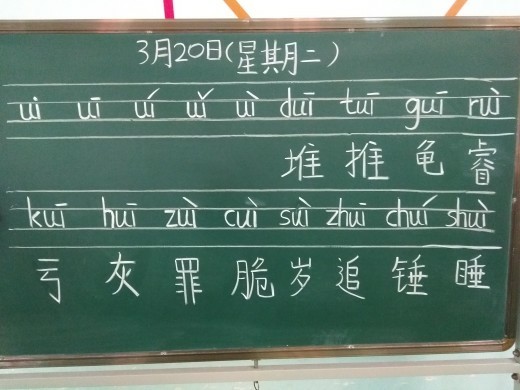 3月20日(星期二)
ui uī uí uǐ uì duī tuī guī ruì
堆 推 龟 睿
kuī huī zuì cuì suì zhuī chuí shuì
亏 灰 罪 脆 岁 追 锤 睡